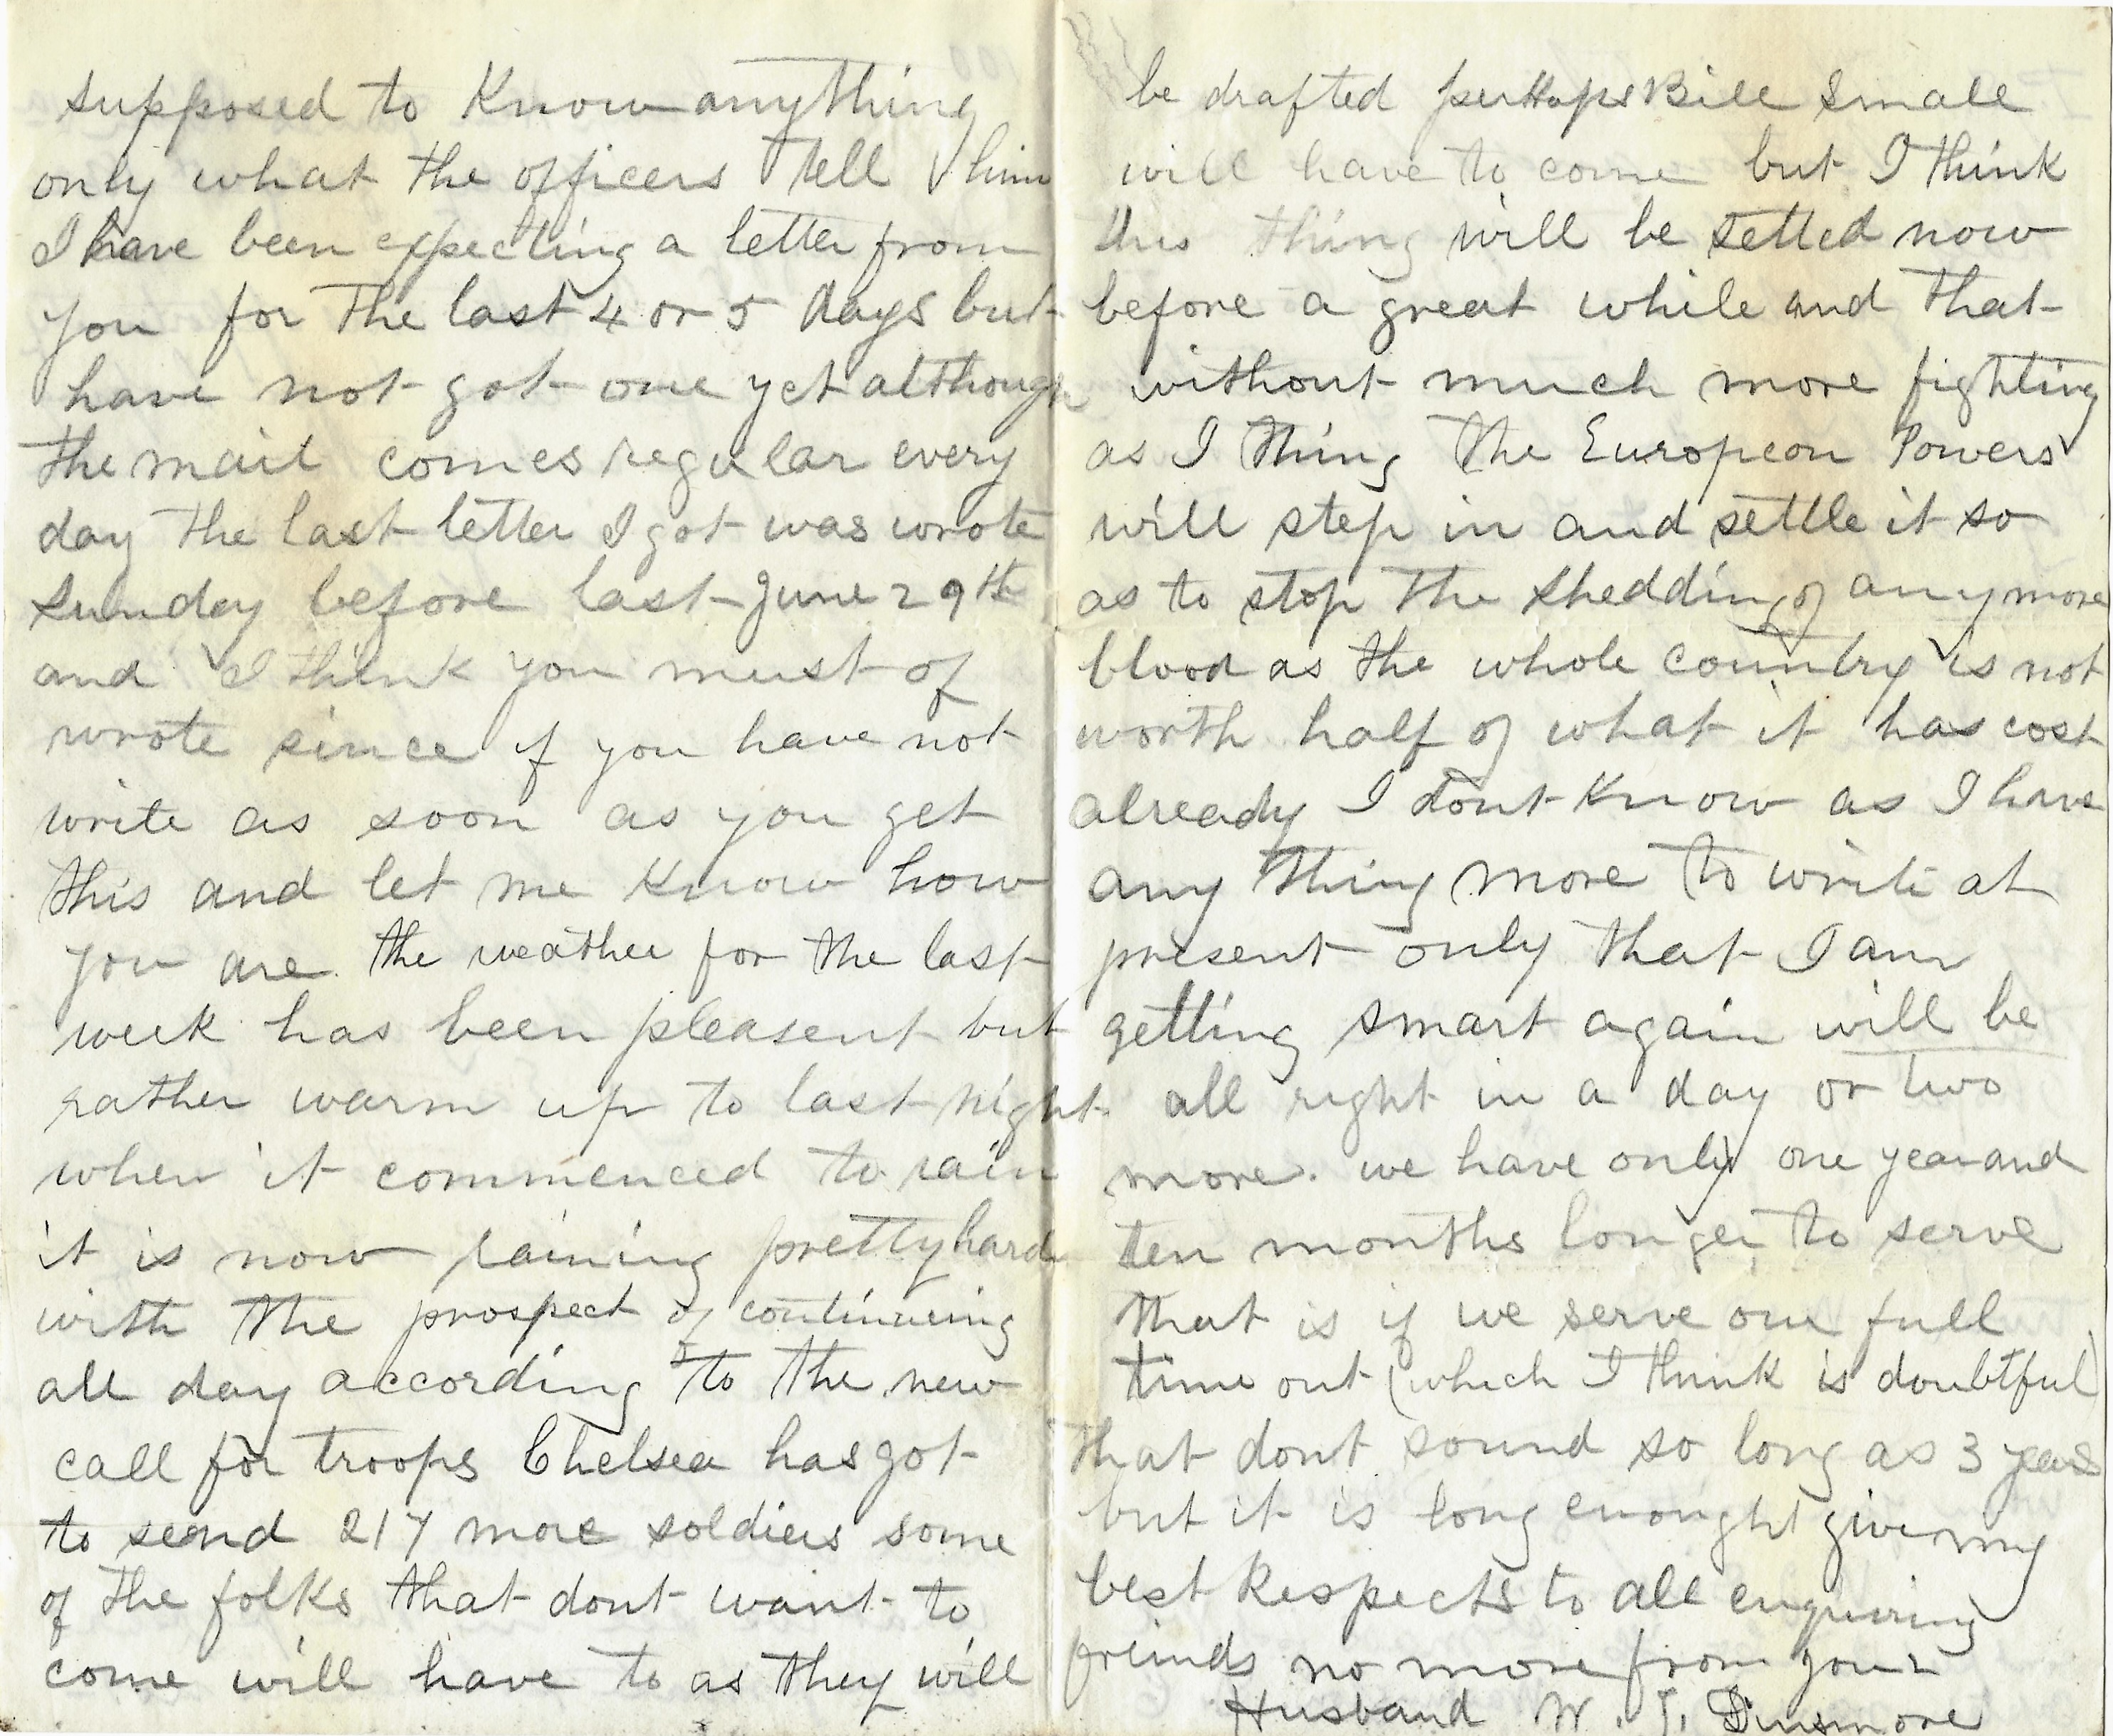 supposed to Know anything
only what the officers tell him
I have been expecting a letter from
you for the last 4 or 5 days but
have not got one yet although
the mail comes regular every
day the last letter I got was wrote
Sunday before last June 29th
and I think you must of
wrote since if you have not
write as soon as you get
this and let me Know how
you are. the weather for the last
week has been pleasent but
rather warm up to last night
when it commenced to rain
it is now raining pretty hard
with the prospect of continueing
all day according to the new
call for troops Chelsea has got
to send 217 more soldiers some
of the folks that dont want to
come will have to as they will
be drafted perHaps Bill Small
will have to come but I think
this thing will be setted now
before a great while and that
without much more fighting
as I thing the European Powers
will step in and settle it so
as to stop the shedding of any more
blood as the whole country is not
worth half of what it has cost
already I dont Know as I have
any thing more to write at
present only that I am
getting smart again will be
all right in a day or two
more. we have only one year and
ten months longer to serve
that is if we serve our full
time out (which I think is doubtful)
that dont sound so long as 3 years
but it is long enought give my
best Respects to all enquiring
freinds no more from your
Husband W. J. Dinsmore